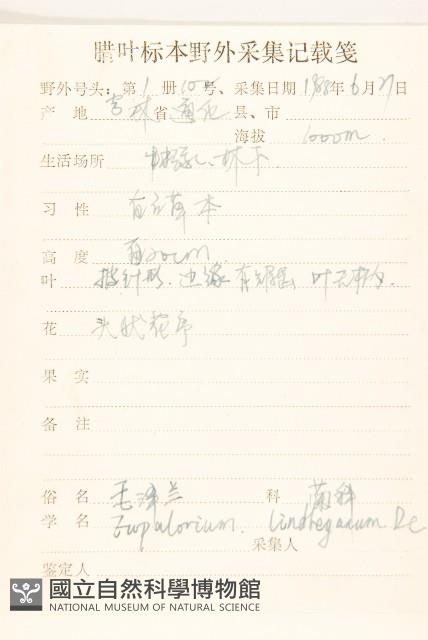 腊叶标本野外采集记载笺
野外号头：第1册10号、采集日期1988年6月27日
产 地 吉林省通化县、市
海拔 1000m.
生活场所 林下
习 性 直立草本
高 度
叶 披针形.边缘有锯齿 叶
花 头状花序
果 实
备 注
俗 名 毛泽兰 科 菊科
学 名 Eupatorium. lindleyanum Dc
采集人
鉴定人
國立自然科學博物館
NATIONAL MUSEUM OF NATURAL SCIENCE